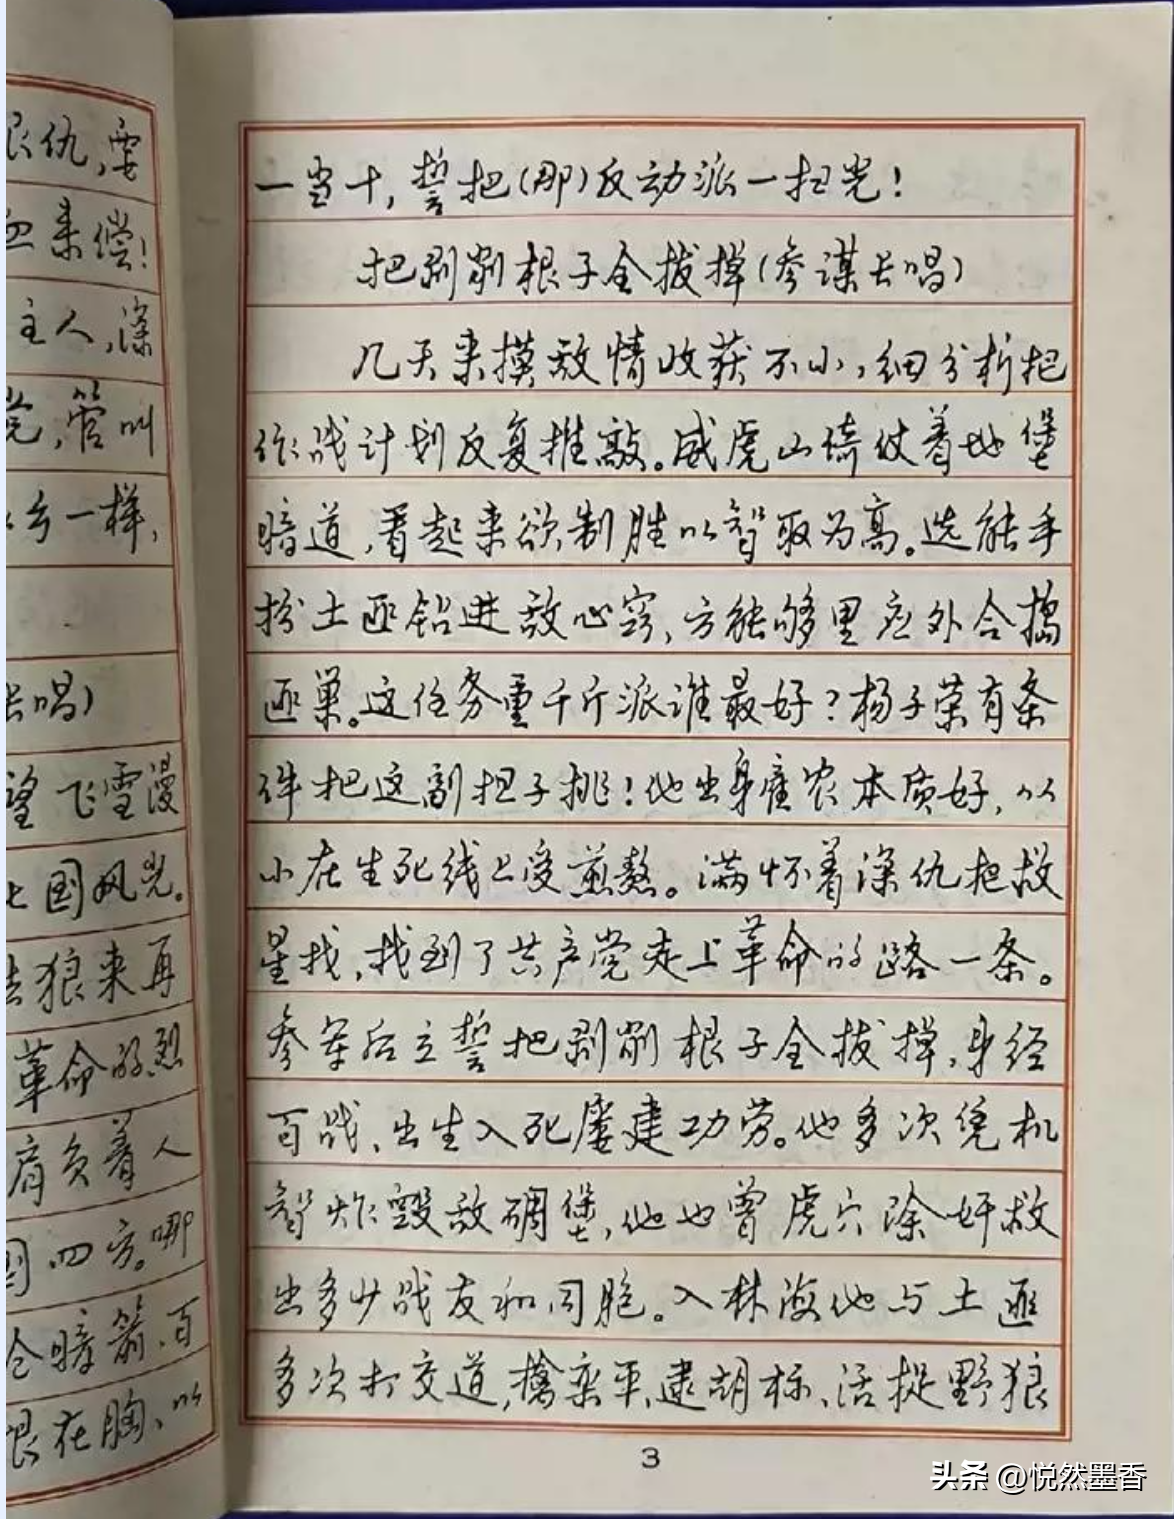 仇,要
来偿!
主人,深
,管叫
乡一样,
唱)
望飞雪漫
国风光。
狼来再
革命的烈
肩负着人
四方。哪
暗箭、百
恨在胸、以
一当十,誓把(那)反动派一扫光!
把剥削根子全拔掉(参谋长唱)
几天来摸敌情收获不小,细分析把
作战计划反复推敲。威虎山倚仗着地堡
暗道,看起来欲制胜以智取为高。选能手
扮土匪钻进敌心窍,方能够里应外合捣
匪巢。这任务重千斤派谁最好?杨子荣有条
件把这副担子挑!他出身雇农本质好,从
小在生死线上受煎熬。满怀着深仇把救
星找,找到了共产党走上革命的路一条。
参军后立誓把剥削根子全拔掉,身经
百战、出生入死屡建功劳。他多次凭机
智炸毁敌碉堡,他也曾虎穴除奸救
出多少战友和同胞。入林海他与土匪
多次打交道,擒栾平、逮胡标、活捉野狼
3
头条 @悦然墨香